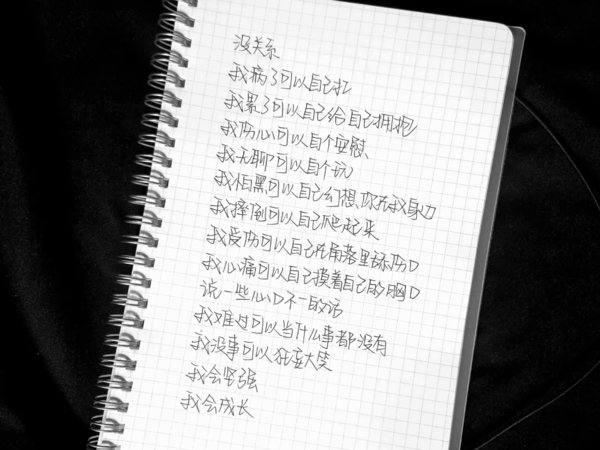 没关系
我病了可以自己扛
我累了可以自己给自己拥抱
我伤心可以自个安慰、
我无聊可以自个玩
我怕黑可以自己幻想、你在我身边
我摔倒可以自己爬起来
我受伤可以自己在角落里舔伤口
我心痛可以自己摸着自己的胸口
说一些心口不一的话
我难过可以当什么事都没有
我没事可以狂妄大笑
我会坚强
我会成长